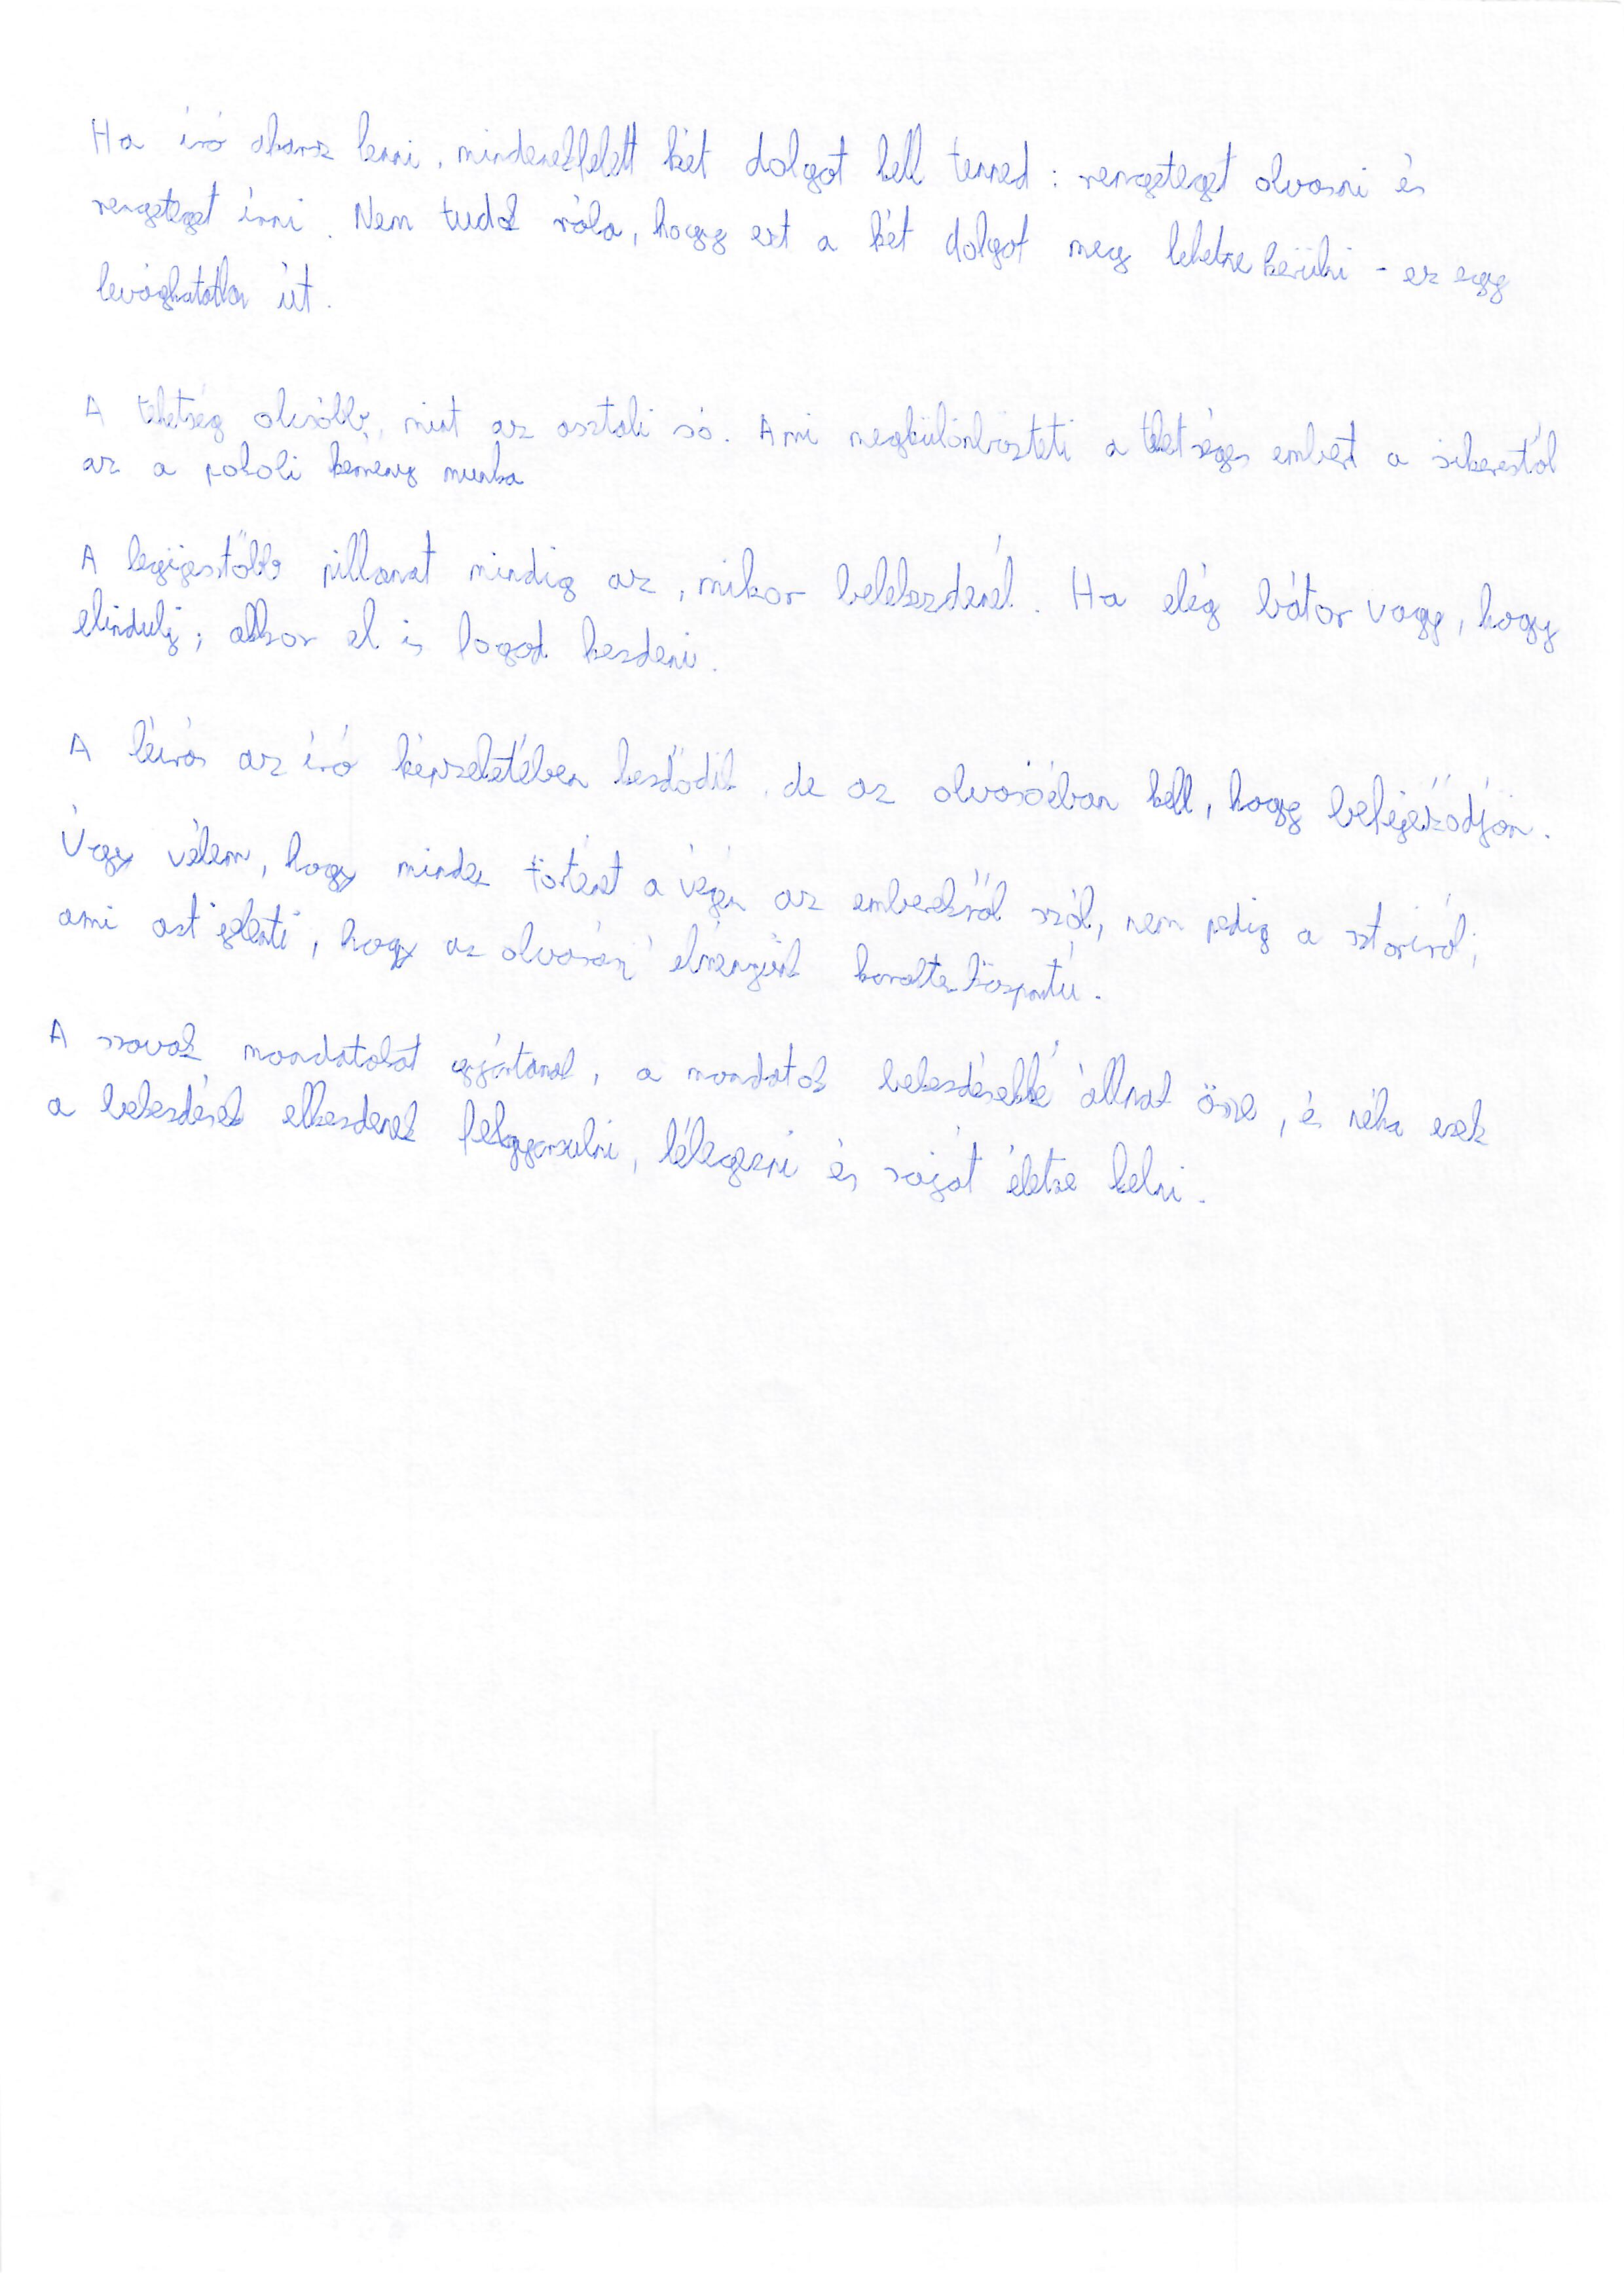 Ha író akarsz lenni, mindenekfelett két dolgot kell tenned: rengeteget olvasni és
rengeteget írni. Nem tudok róla, hogy ezt a két dolgot meg lehetne kerülni - ez egy
levághatatlan út.
A tehetség olcsóbb, mint az asztali só. Ami megkülönbözteti a tehetséges embert a sikerestől
az a pokoli kemény munka
A legijesztőbb pillanat mindig az, mikor belekezdenél. Ha elég bátor vagy, hogy
elindulj, akkor el is fogod kezdeni.
A leírás az író képzeletében kezdődik, de az olvasóéban kell, hogy befejeződjön.
Úgy vélem, hogy minden történet a végén az emberekről szól, nem pedig a sztoriról,
ami azt jelenti, hogy az olvasási élményünk karakterközpontú.
A szavak mondatokat gyártanak, a mondatok bekezdésekké állnak össze, és néha ezek
a bekezdések elkezdenek felgyorsulni, lélegezni és saját életre kelni.